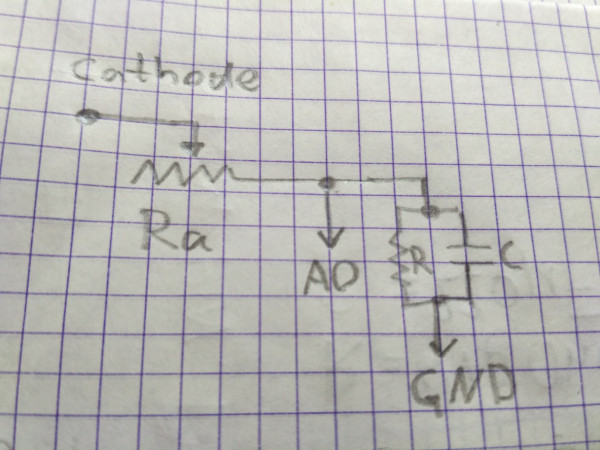 Cathode
Ra
A0
R
C
GND